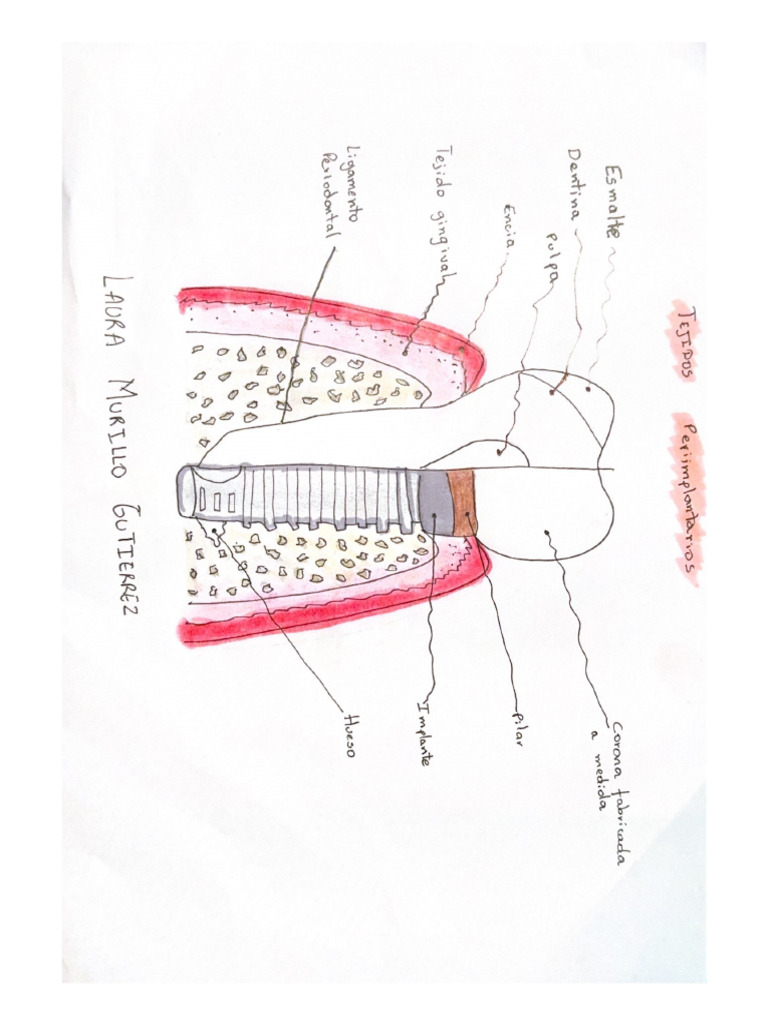 TEJIDOS Periimplantarios
Esmalte
Dentina
Pulpa
Encia
Tejido gingival
Ligamento
Periodontal
Corona fabricada
a medida
Pilar
Implante
Hueso
LAURA MURILLO GUTIERREZ